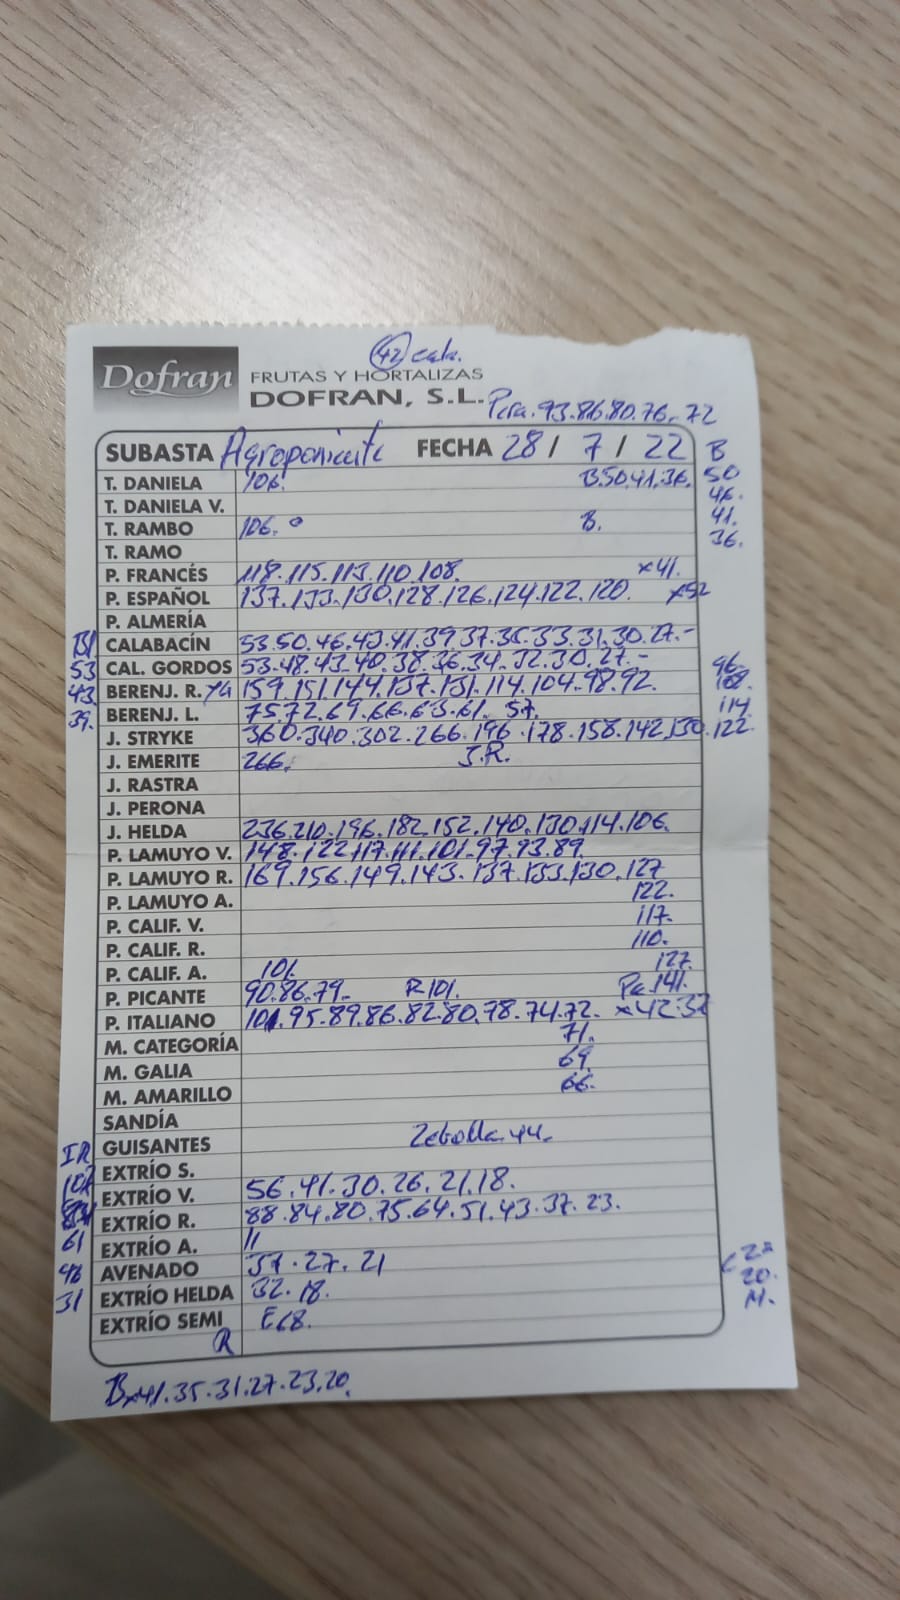 42 cala.
Dofran FRUTAS Y HORTALIZAS
DOFRAN, S.L. 93.86.80.76.72
SUBASTA Agroponiente FECHA 28 / 7 / 22 B
T. DANIELA 106. B.50.41.36. 50
T. DANIELA V. 46.
T. RAMBO 106. B. 41.
T. RAMO 36.
P. FRANCÉS 118.115.113.110.108. x41.
P. ESPAÑOL 137.133.130.128.126.124.122.120. x52
P. ALMERÍA
Bl CALABACÍN 53.50.46.43.41.39.37.35.33.31.30.27.-
53 CAL. GORDOS 53.48.43.40.38.36.34.32.30.27.- 96.
43. BERENJ. R. 159.151.144.137.131.114.104.98.92. 108.
39. BERENJ. L. 75.72.69.66.63.61. 57. 114
J. STRYKE 360.340.302.266.196.178.158.142.130.122.
J. EMERITE 266. J.R.
J. RASTRA
J. PERONA
J. HELDA 236.210.196.182.152.140.130.114.106.
P. LAMUYO V. 148.122.117.111.101.97.93.89.
P. LAMUYO R. 169.156.149.143.137.133.130.127
P. LAMUYO A. 122.
P. CALIF. V. 117.
P. CALIF. R. 110.
P. CALIF. A. 101. 127.
P. PICANTE 90.86.79. R 101. Pa.141.
P. ITALIANO 101.95.89.86.82.80.78.74.72. x42.32
M. CATEGORÍA 71.
M. GALIA 69.
M. AMARILLO 66.
SANDÍA
IR GUISANTES Zebolla.44.
EXTRÍO S.
EXTRÍO V. 56.41.30.26.21.18.
EXTRÍO R. 88.84.80.75.64.51.43.37.23.
61 EXTRÍO A. 11
48 AVENADO 37.27.21
31 EXTRÍO HELDA 32.18. 20.
EXTRÍO SEMI E18.
R
Bx41.35.31.27.23.20.